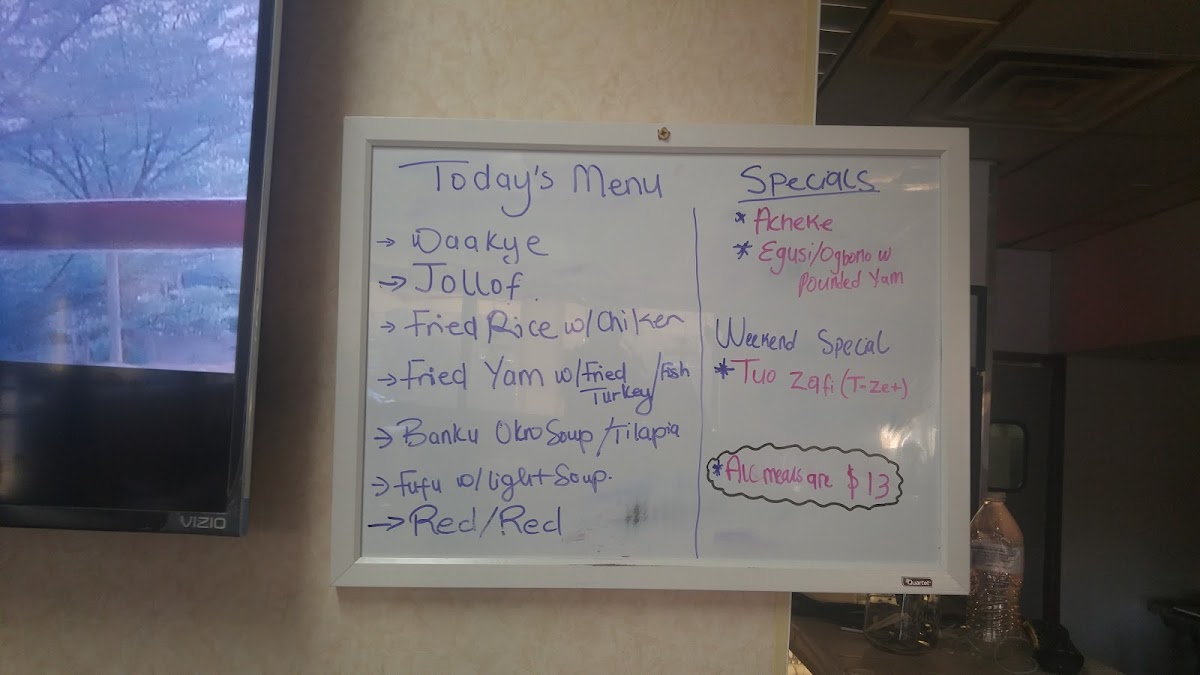 Today's Menu
→ Waakye
→ Jollof.
→ Fried Rice w/Chiken
→ Fried Yam w/Fried Turkey/Fish
→ Banku Okro Soup/Tilapia
→ Fufu w/light Soup.
→ Red/Red
Specials
* Acheke
* Egusi/Ogbono w
Pounded Yam
Weekend Special
* Tuo Zafi (T-Zet)
* All meals are $13
VIZIO
Quartet